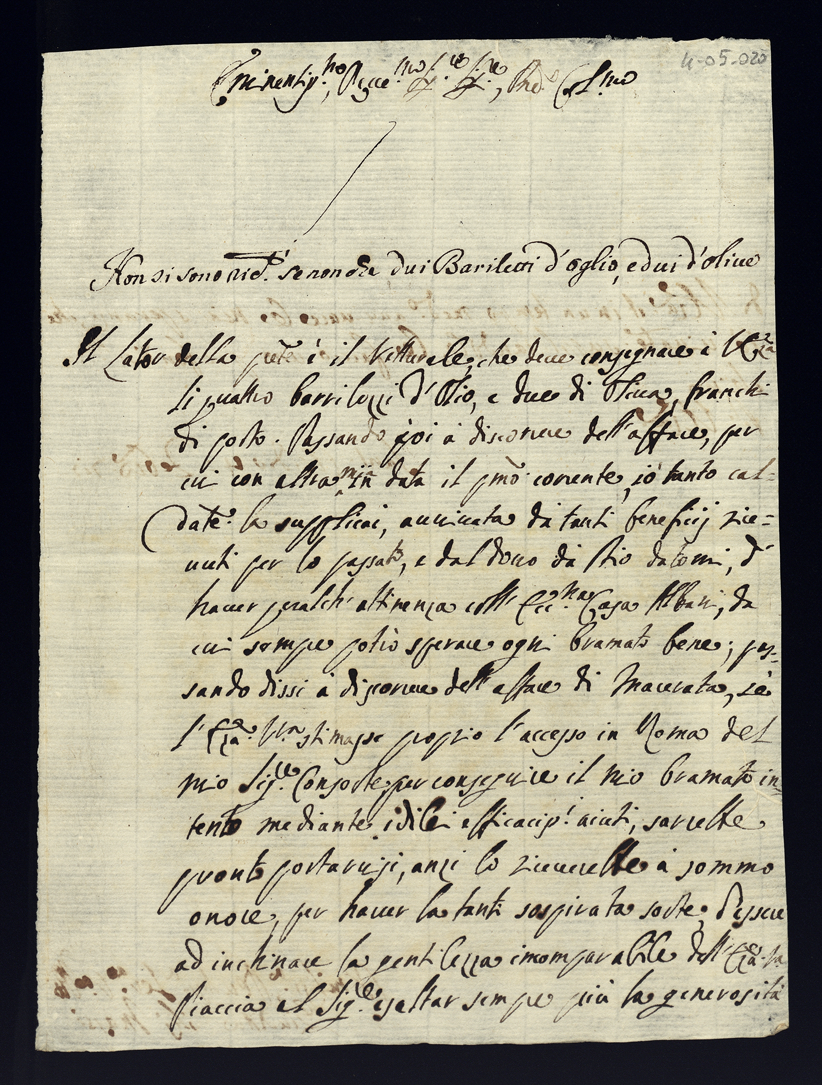 4-05-020
Eminentis.mo, Rev.mo Sig.re Sig.re, Pad. Col.mo
Non si sono ric.ti se non che dui Bariletti d'oglio, e dui d'olive
Il Lator della pnte è il Vetturale, che deve consegnare à V. Ecc.za
li quattro barrilozzi d'Olio, e due di Oliva, franchi
di porto. Passando poi à discorrere dell'affare, per
cui con altra mia in data il pmo corrente, io tanto cal=
date. la supplicai, avvivata da tanti beneficij rice=
vuti per lo passato, e dal dono da Dio datomi, d'
haver qualch' attinenza coll' Ecc.ma Casa Albani, da
cui sempre potrò sperare ogni bramato bene; pas=
sando dissi à discorrere dell'affare di Macerata, se
l' Ecc.za V.ra stimasse proprio l'accesso in Roma del
mio Sig.re Consorte, per conseguire il mio bramato in=
tento mediante i di lei efficacis.i aiuti, sarebbe
pronto portarvisi, anzi lo riceverebbe à sommo
onore, per haver la tanto sospirata sorte, d'essere
ad inchinare la gentilezza incomparabile dell' Ecc.za V.ra
Piaccia al Sig.re esaltar sempre più la generosità